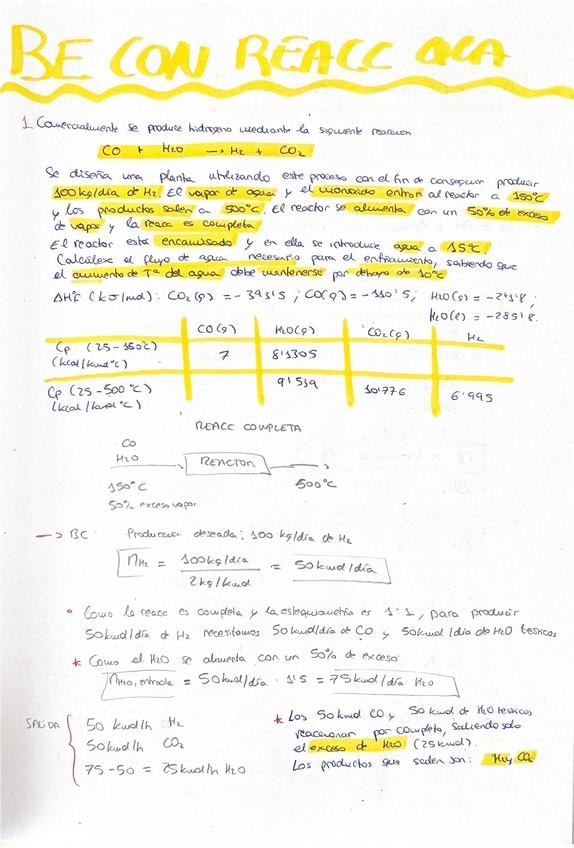 BE CON REACC QCA
1 Comercialmente se produce hidrogeno mediante la siguiente reaccion
CO + H2O → H2 + CO2
Se diseña una planta utilizando este proceso con el fin de conseguir producir
100 kg/día de H2. El vapor de agua y el monoxido entran al reactor a 150°C
y los productos salen a 500°C. El reactor se alimenta con un 50% de exceso
de vapor y la reacc es completa
El reactor esta encamisado y en ella se introduce agua a 15°C
Calcúlese el flujo de agua necesario para el enfriamiento, sabiendo que
el aumento de Tª del agua debe mantenerse por debajo de 10°C
ΔH°f (kJ/mol): CO2(g) = -393'5 ; CO(g) = -110'5 ; H2O(g) = -241'8 ;
H2O(l) = -285'8.
CO(g) H2O(g) CO2(g) H2
Cp (25-150°C) 7 8'1305
(kcal/kmol°C)
Cp (25-500°C) 9'539 10'776 6'995
(kcal/kmol°C)
REACC COMPLETA
CO
H2O REACTOR
150°C 500°C
50% exceso vapor
→ BC Produccion deseada: 100 kg/dia de H2
nH2 = 100 kg/dia / 2 kg/kmol = 50 kmol/día
• Como la reacc es completa y la estequiometría es 1:1, para producir
50 kmol/día de H2 necesitamos 50 kmol/día de CO y 50 kmol/día de H2O teoricos
* Como el H2O se alimenta con un 50% de exceso:
nH2O, entrada = 50 kmol/día · 1'5 = 75 kmol/día H2O
SALIDA
50 kmol/h H2
50 kmol/h CO2
75 - 50 = 25 kmol/h H2O
* Los 50 kmol CO y 50 kmol de H2O teoricos
reaccionan por completo, saliendo solo
el exceso de H2O (25 kmol).
Los productos que salen son: H2 y CO2